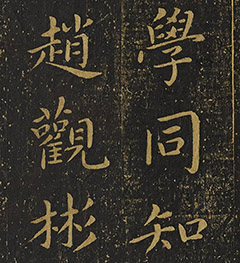 學同知
趙觀彬